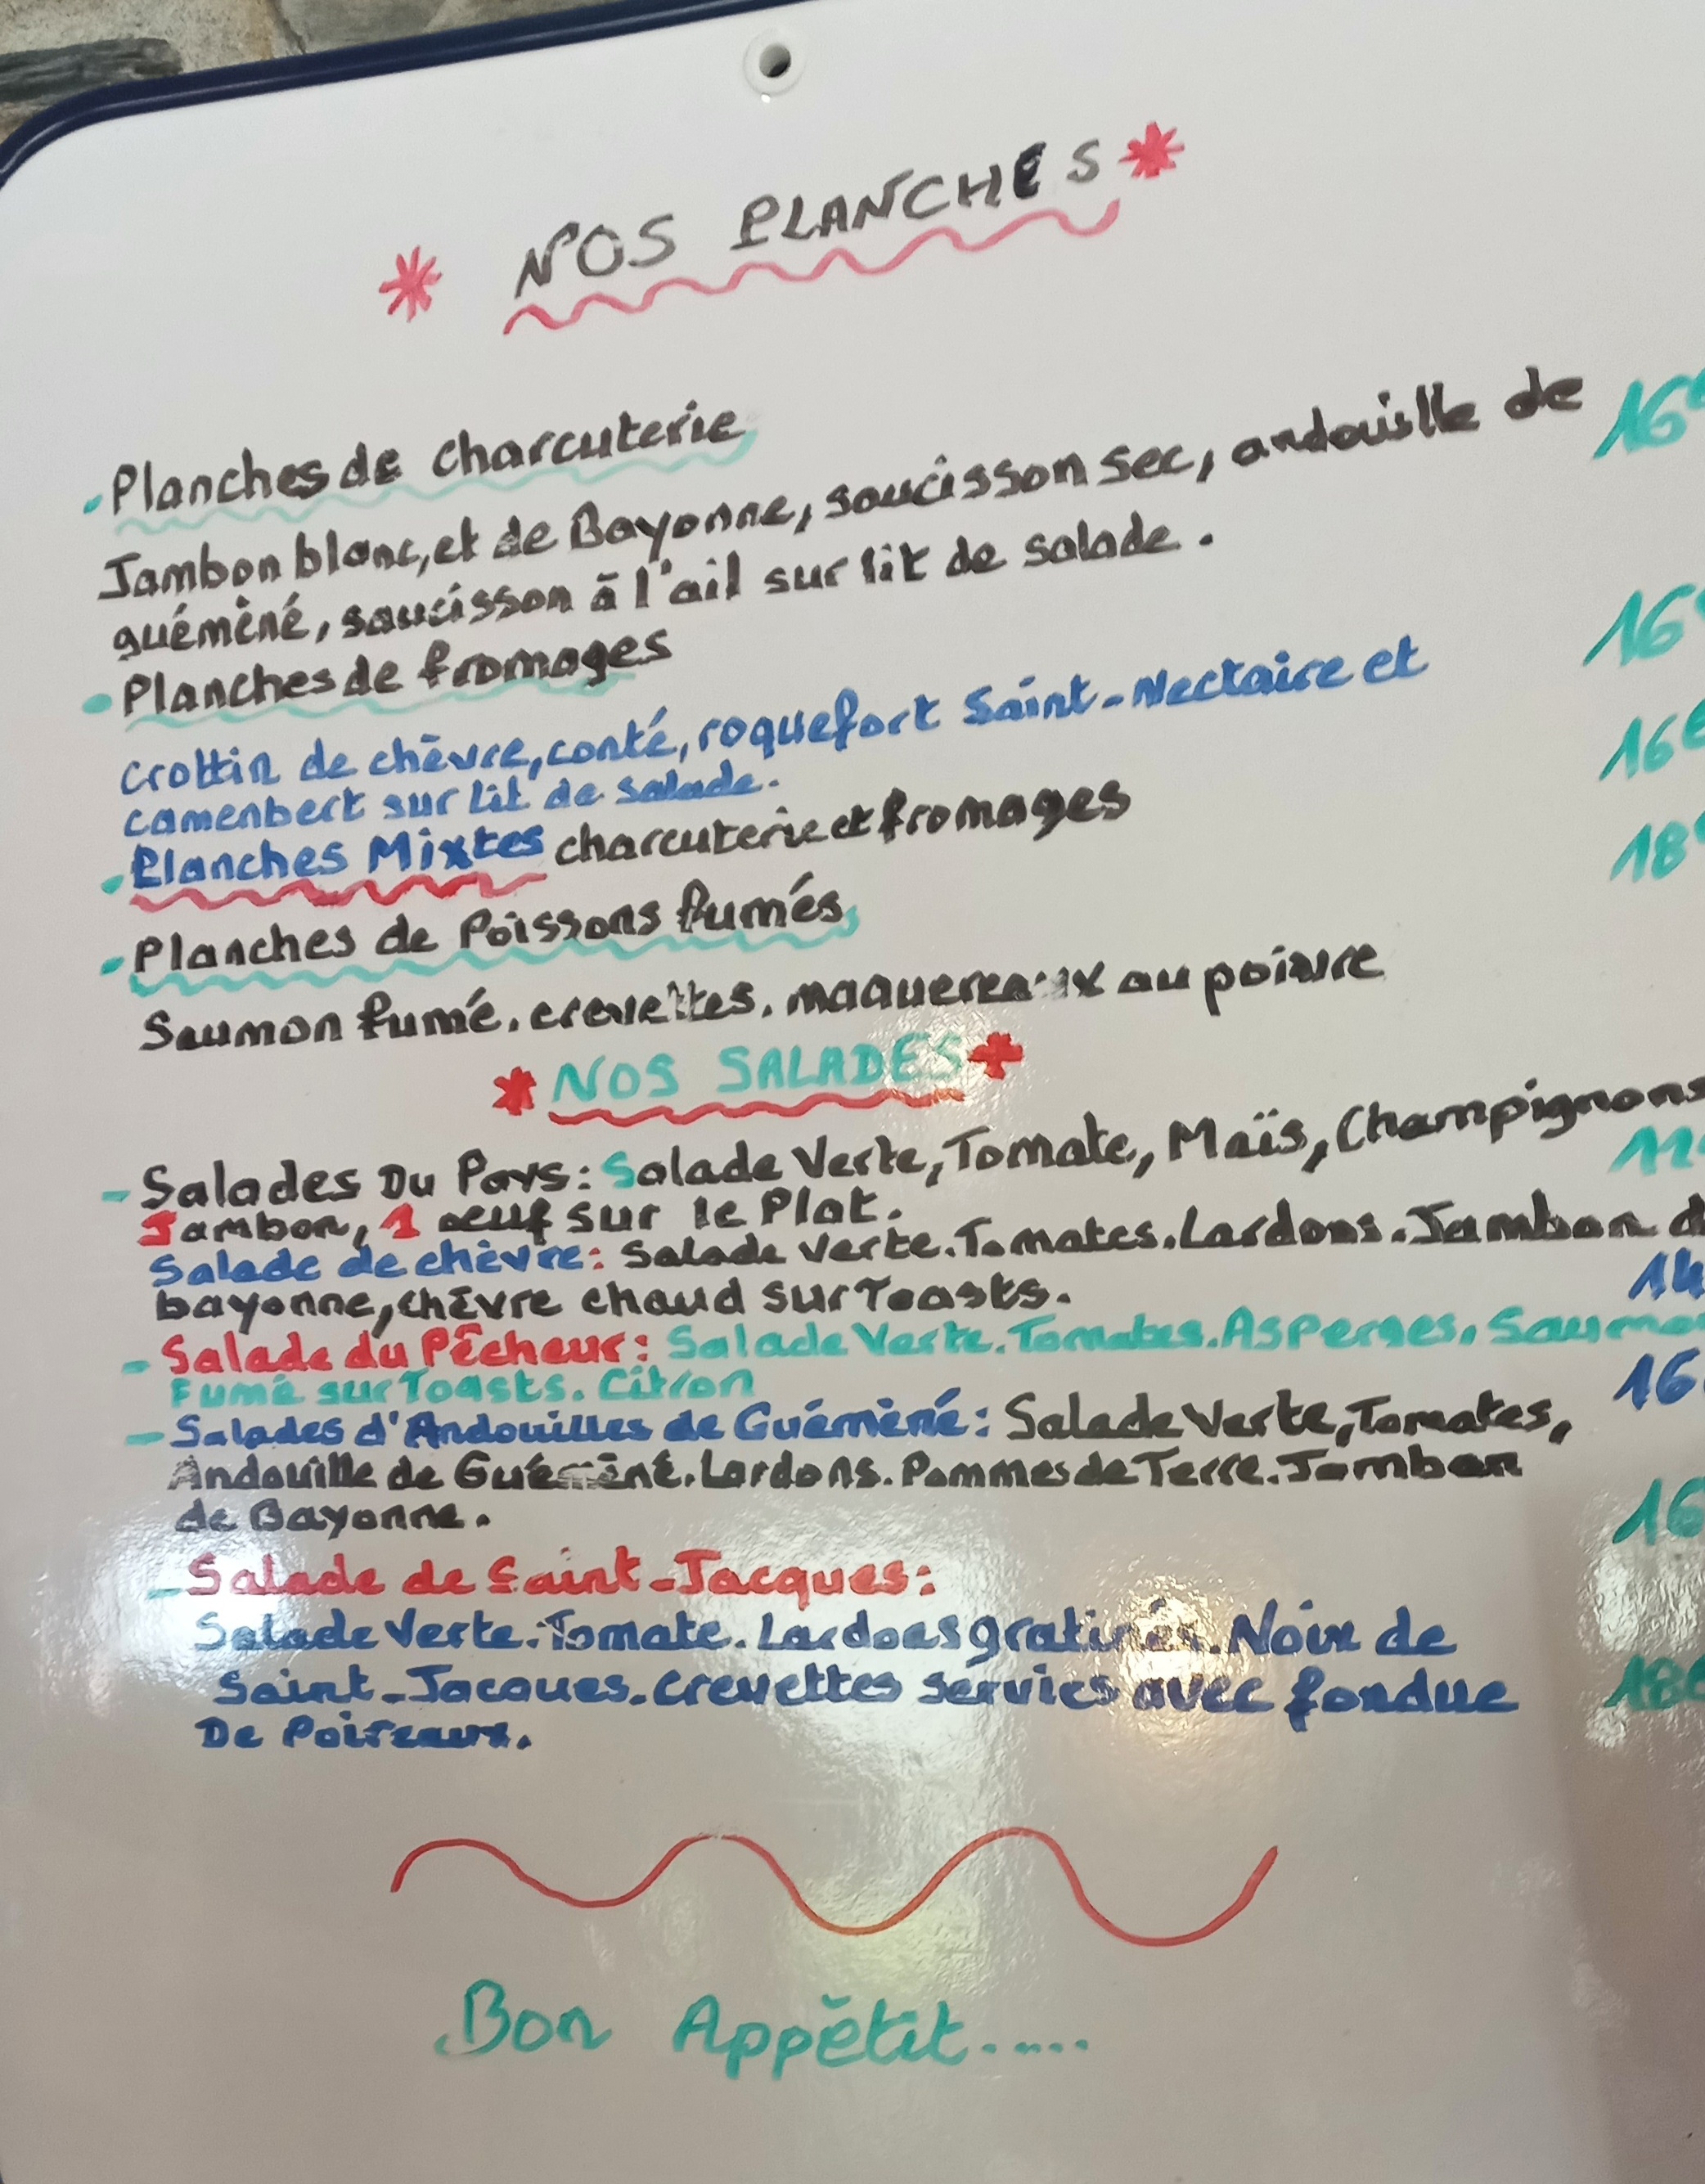 * NOS PLANCHES *
• Planches de charcuterie
Jambon blanc, et de Bayonne, saucisson sec, andouille de 16€
guéméné, saucisson à l'ail sur lit de salade.
• Planches de fromages 16€
crottin de chèvre, conté, roquefort Saint-Nectaire et
camenbert sur lit de salade. 16€
• Planches Mixtes charcuterie et fromages
• Planches de Poissons fumés 18€
Saumon fumé. crevettes. maquereaux au poivre
* NOS SALADES *
- Salades Du Pays: Salade Verte, Tomate, Maïs, Champignons
Jambon, 1 oeuf sur le Plat. 11
Salade de chèvre: Salade Verte. Tomates. Lardons. Jambon d
bayonne, chèvre chaud sur Toasts. 14
- Salade du Pêcheur: Salade Verte. Tomates. Asperges. Saumon
Fumé sur Toasts. Citron 16
- Salades d'Andouilles de Guéméné: Salade Verte, Tomates,
Andouille de Guéméné. Lardons. Pommes de Terre. Jambon
de Bayonne. 16
- Salade de Saint-Jacques:
Salade Verte. Tomate. Lardons gratinés. Noix de
Saint-Jacques. Crevettes servies avec fondue 18€
De Poireaux.
Bon Appétit.....